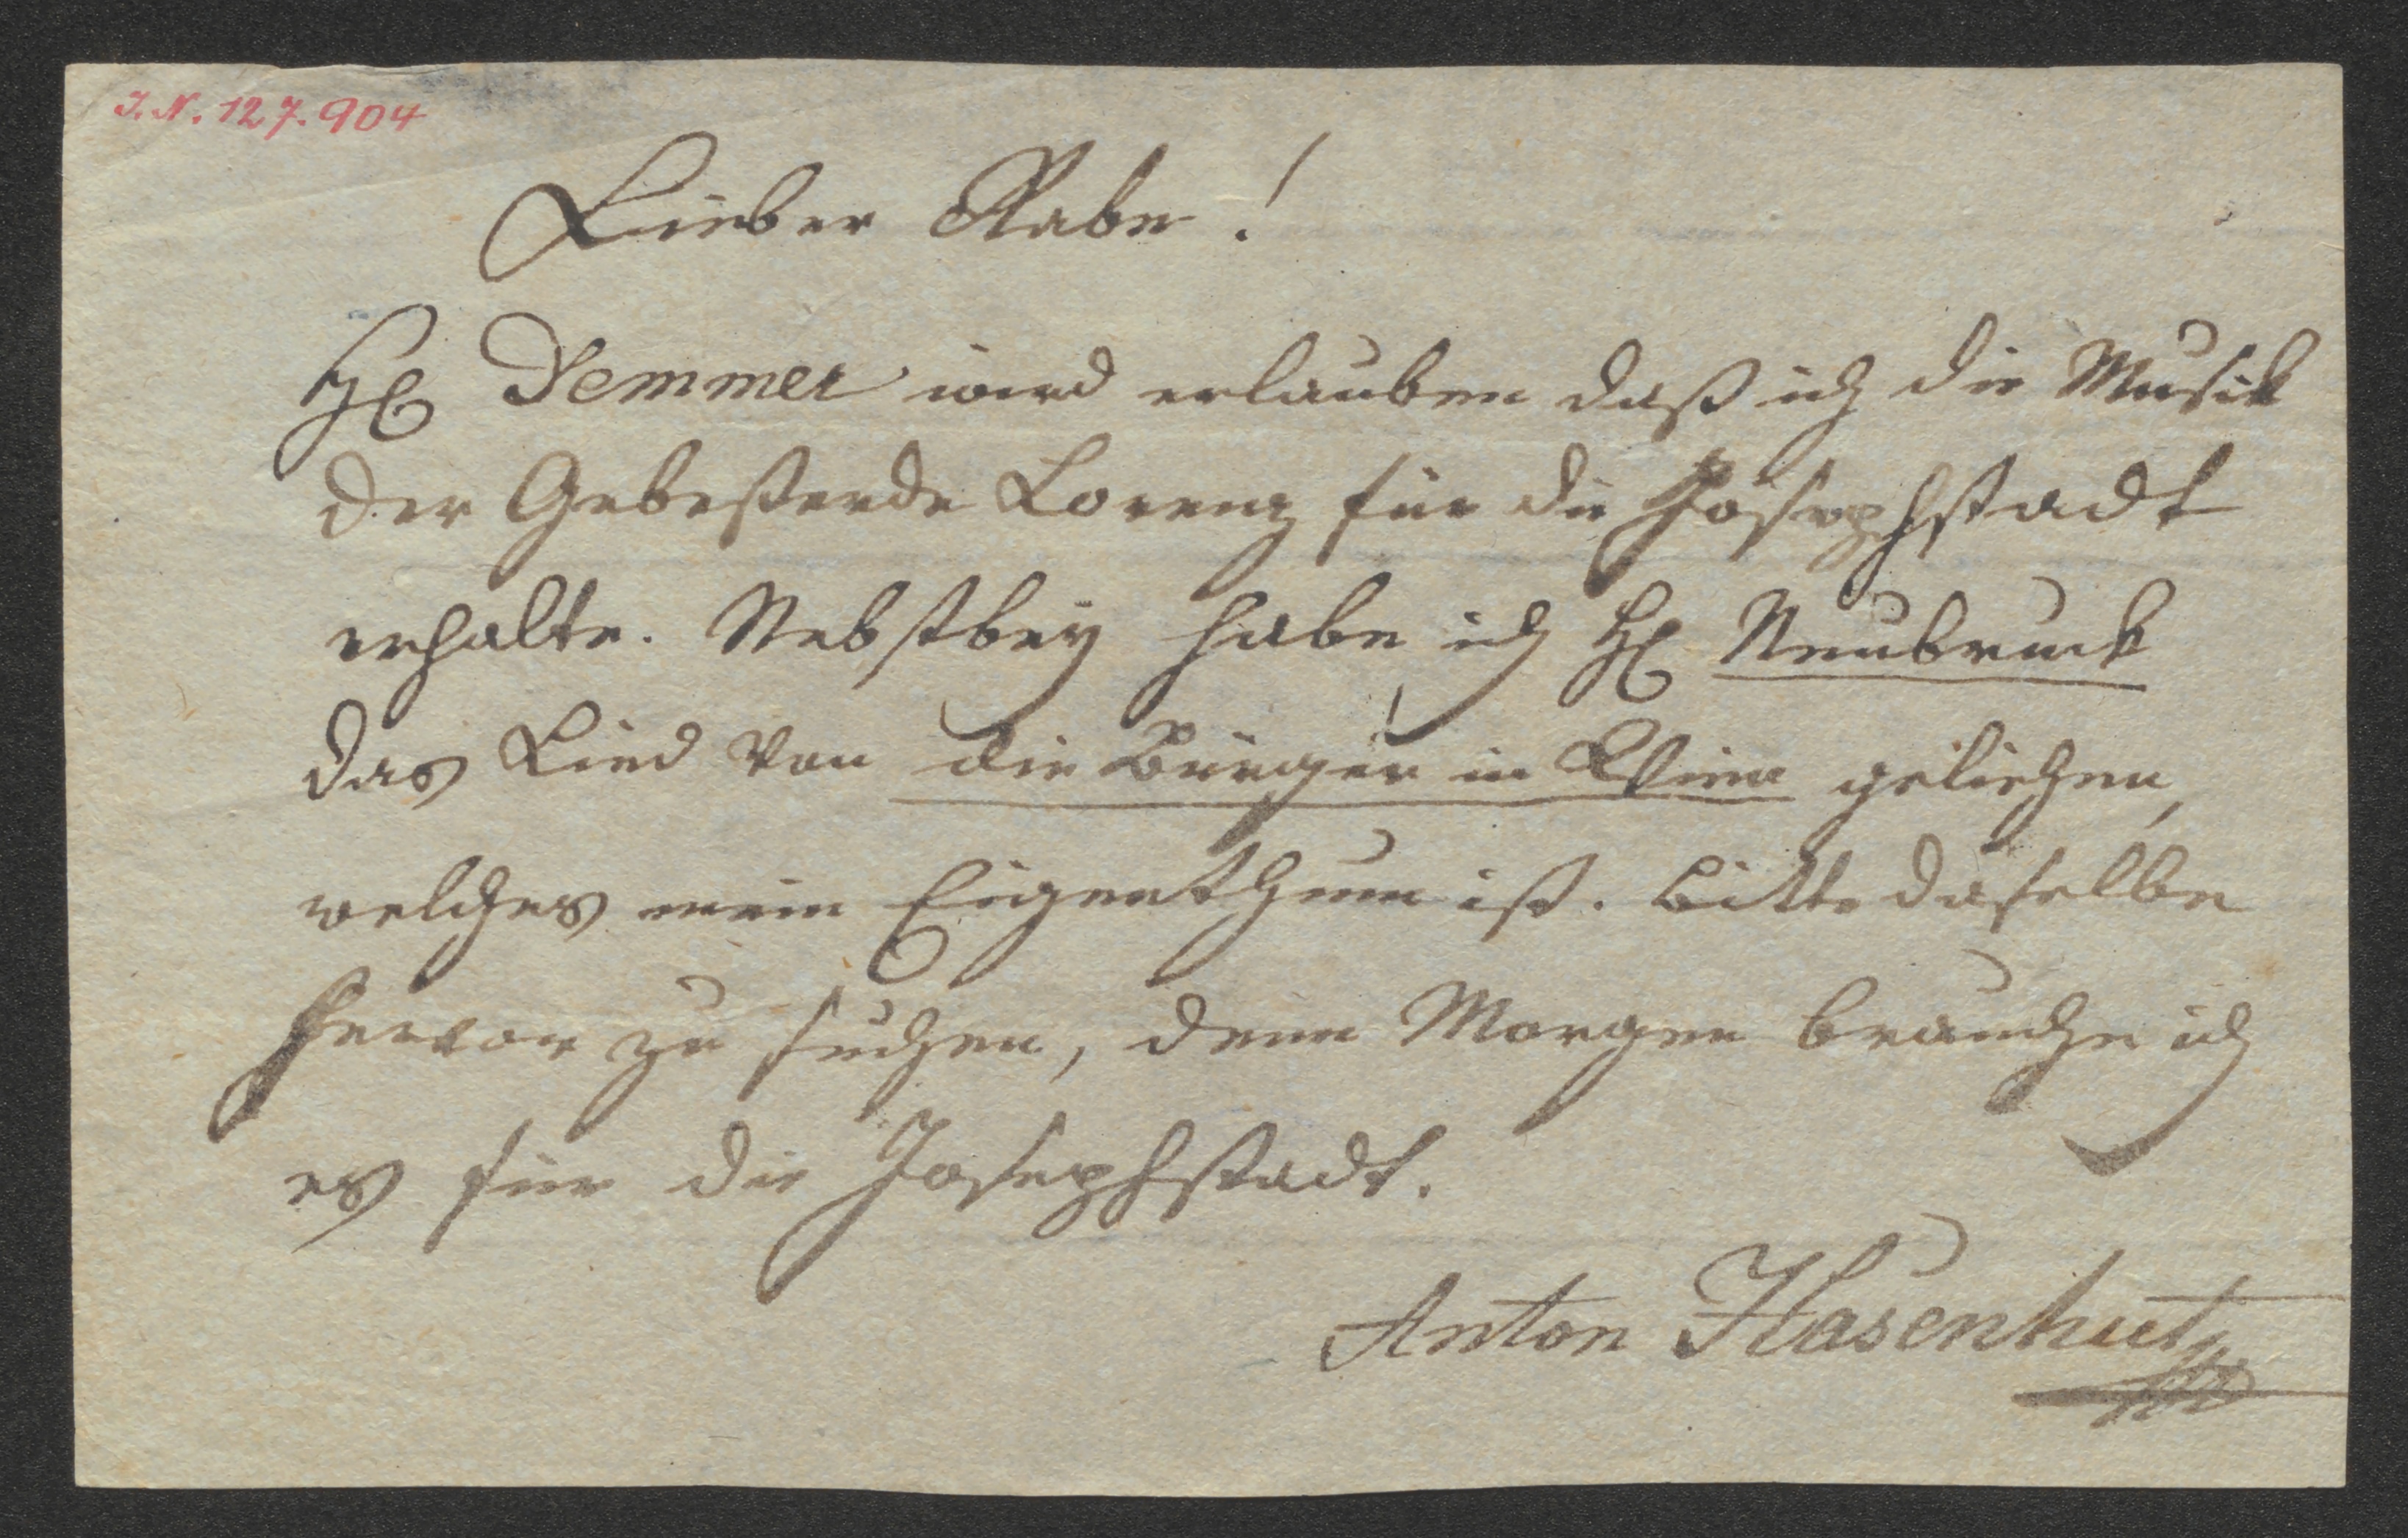 J. N. 127.904
Lieber Rabe!
H. Demmer wird erlauben daß ich die Musik
der Gebesserde Lorenz für die Josephstadt
erhalte. Nebstbey habe ich H. Neubruck
das Lied von die Bürger in Wien geliehen,
welches mein Eigenthum ist. Bitte daselbe
hervor zu suchen, denn Morgen brauche ich
es für die Josephstadt.
Anton Hasenhut